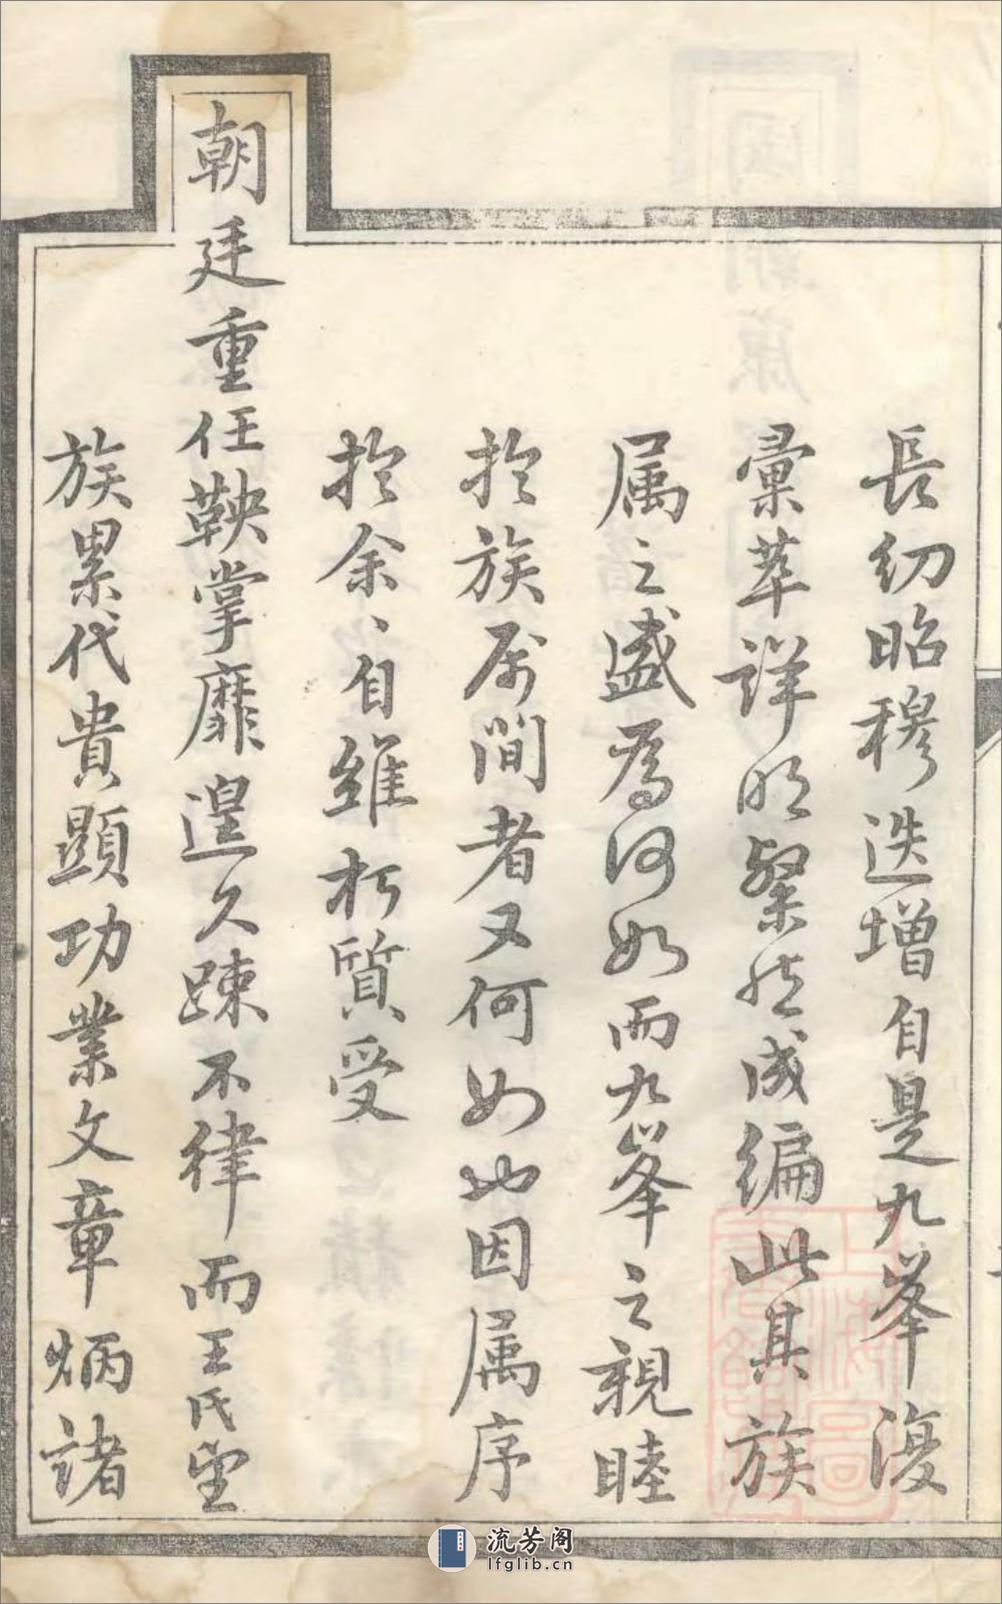 長幼昭穆迭增自是九峯復
彙萃詳明粲然成編此其族
属之盛為何如而九峯之親睦
於族属間者又何如也因属序
於余、自維朽質受
朝廷重任鞅掌靡遑久疎不律而王氏望
族累代貴顕功業文章炳諸
流芳阁
lfglib.cn